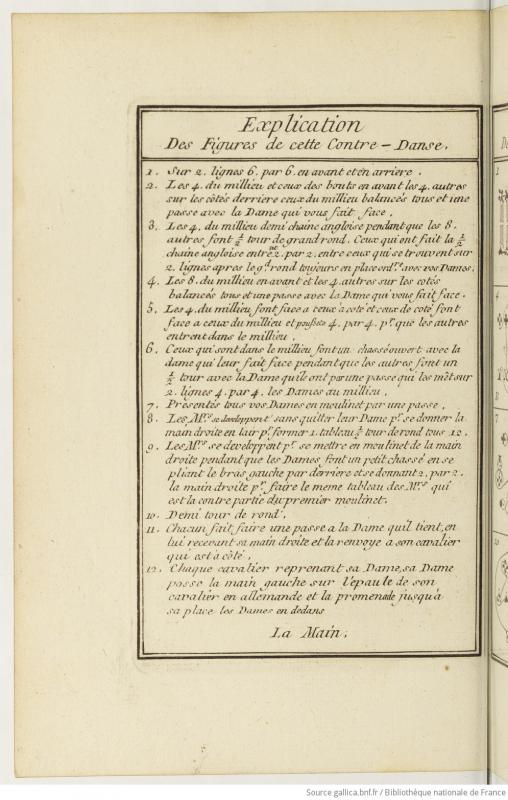 Explication
Des Figures de cette Contre-Danse.
1. Sur 2. lignes 6. par 6. en avant et en arriere.
2. Les 4. du millieu et ceux des bouts en avant les 4. autres
sur les côtés derriere ceux du millieu balancés tous et une
passe avec la Dame qui vous fait face.
3. Les 4. du millieu demi chaine angloise pendant que les 8.
autres font ½ tour de grand rond. Ceux qui ont fait la ½
chaine angloise entrent 2. par 2. entre ceux qui se trouvent sur
2. lignes apres le gd. rond toujours en place ordre. avec vos Dames.
4. Les 8. du millieu en avant et les 4. autres sur les cotés
balancés tous et une passe avec la Dame qui vous fait face.
5. Les 4. du millieu font face a ceux à coté et ceux de coté font
face a ceux du millieu et poussete 4. par 4. pr. que les autres
entrent dans le millieu.
6. Ceux qui sont dans le millieu font un chassé ouvert avec la
dame qui leur fait face pendant que les autres font un
½ tour avec la Dame qu'ils ont par une passe qui les met sur
2. lignes 4. par 4. les Dames au millieu.
7. Présentés tous vos Dames en moulinet par une passe.
8. Les Mrs. se developpent sans quitter leur Dame pr. se donner la
main droite en lair pr. former 1. tableau ½ tour de rond tous 12.
9. Les Mrs. se developpent pr. se mettre en moulinet de la main
droite pendant que les Dames font un petit chassé en se
pliant le bras gauche par derriere et se donnant 2. par 2.
la main droite pr. faire le meme tableau des Mrs. qui
est la contre partie du premier moulinet.
10. Demi tour de rond.
11. Chacun fait faire une passe a la Dame qu'il tient, en
lui recevant sa main droite et la renvoye a son cavalier
qui est à côté.
12. Chaque cavalier reprenant sa Dame, sa Dame
passe la main gauche sur l'epaule de son
cavalier en allemande et la promenade jusqu'à
sa place les Dames en dedans
La Main.
Source gallica.bnf.fr / Bibliothèque nationale de France